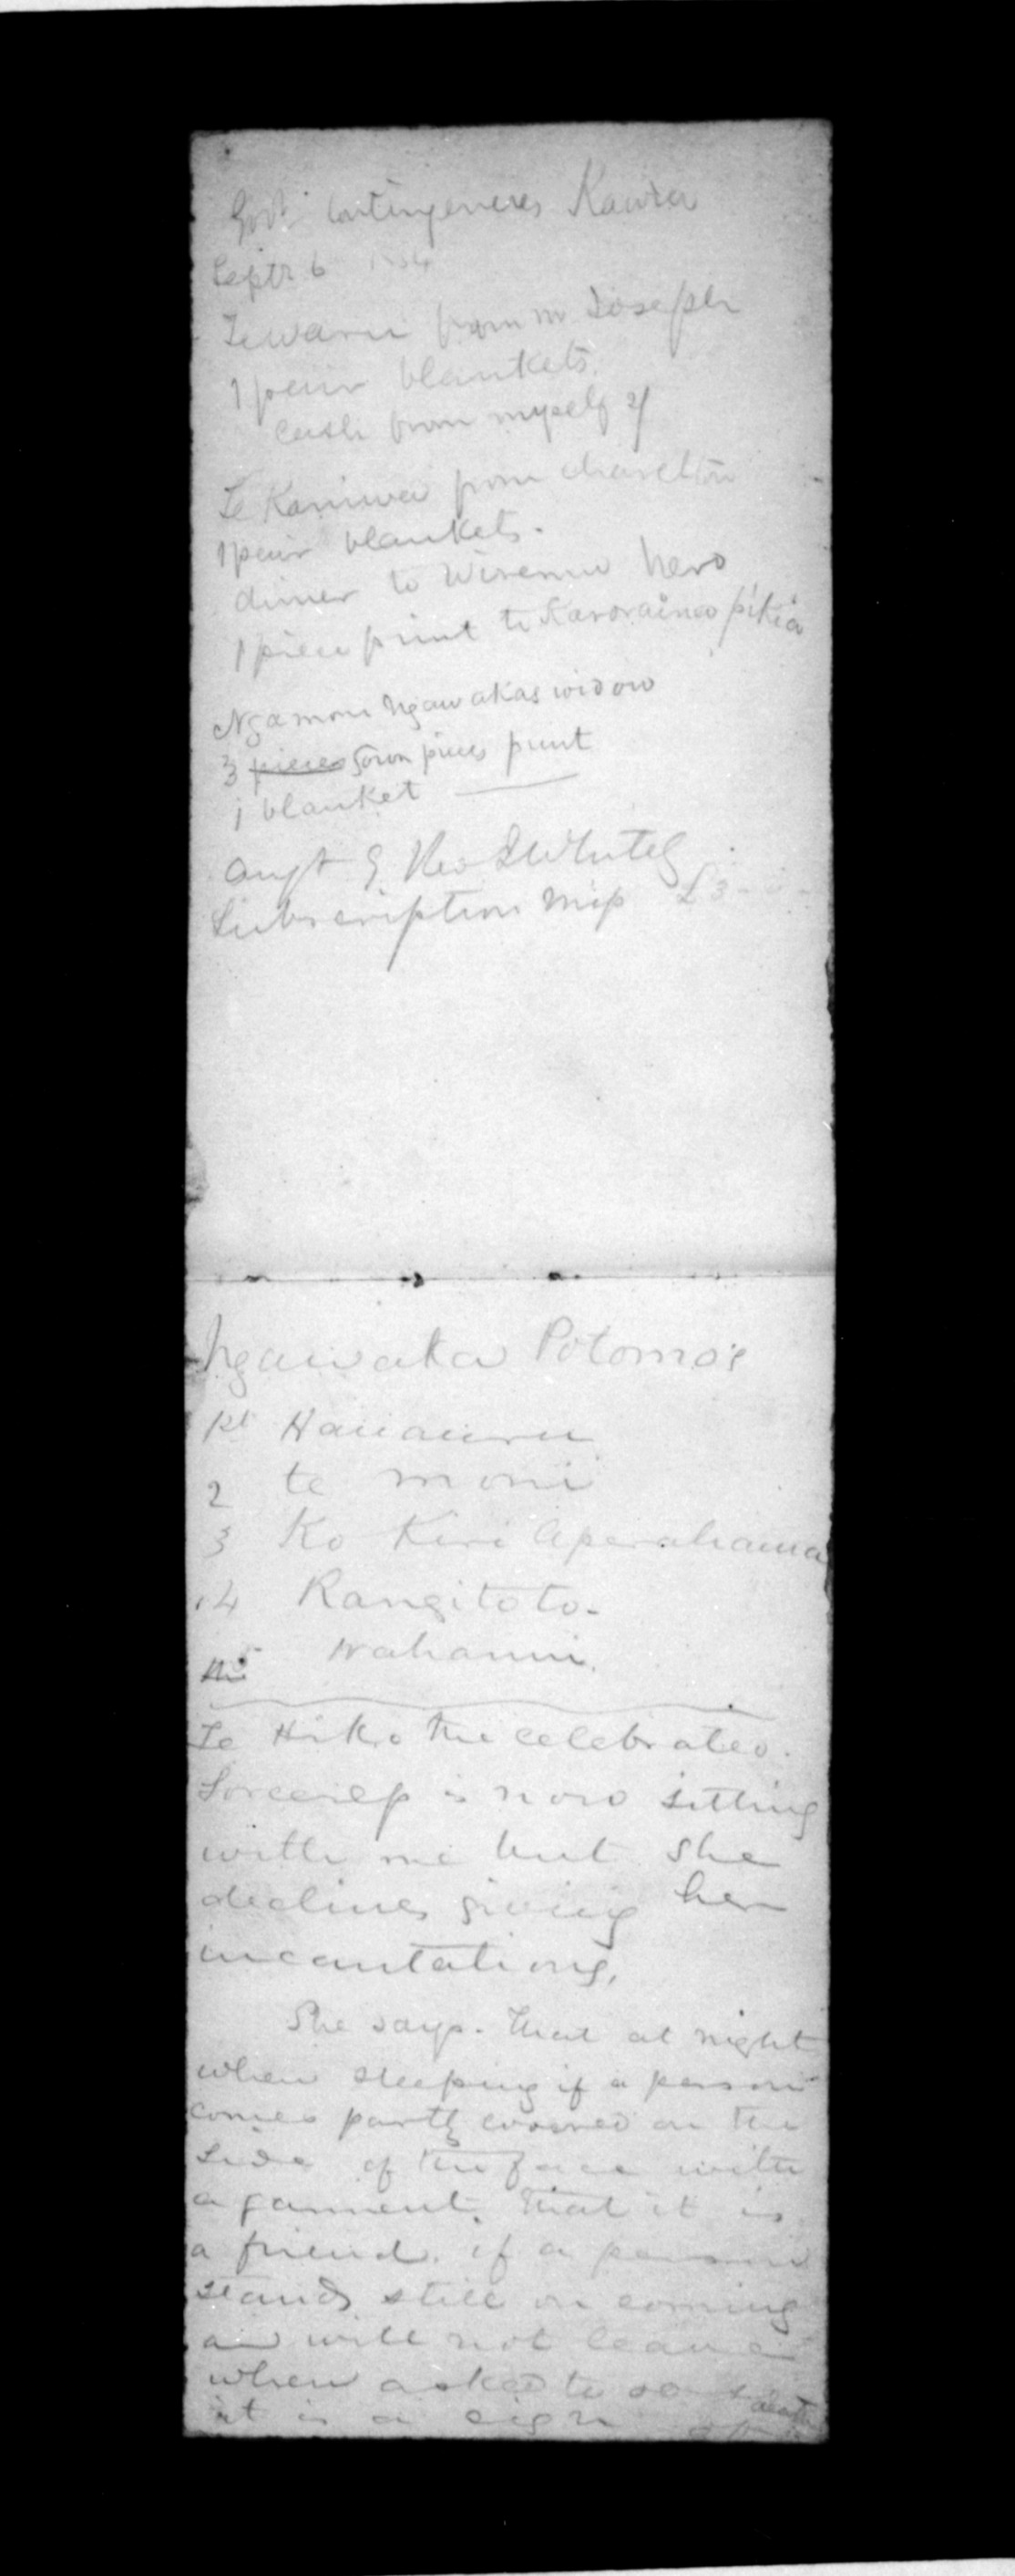 Govt Contingencies Kawia
Septr 6
Tewaru from mr Joseph
1 pair blankets.
Cash from myself 2/
Te Kaniwa from charelton
1 pair blankets.
dinner to Wiremu hero
1 piece print to pikia
Ngamoni Ngawakas widow
3 pieces Gown pieces print
1 blanket
augt 9 Rev
Subscription Mip £3
Ngawaka Potomo's
1st Hauauru
2 te moni
3 Ko Kiri Aperahama
4 Rangitoto-
5 Wahanui.
Te Hiko the celebrated.
Sorceress is now sitting
with me but she
declines giving her
incantations,
She says. that at night
when sleeping if a person
comes partly covered on the
side of the face with
a garment. that it is
a friend. if a person
stands still on coming
and will not
when asked to do so
it is a sign of death